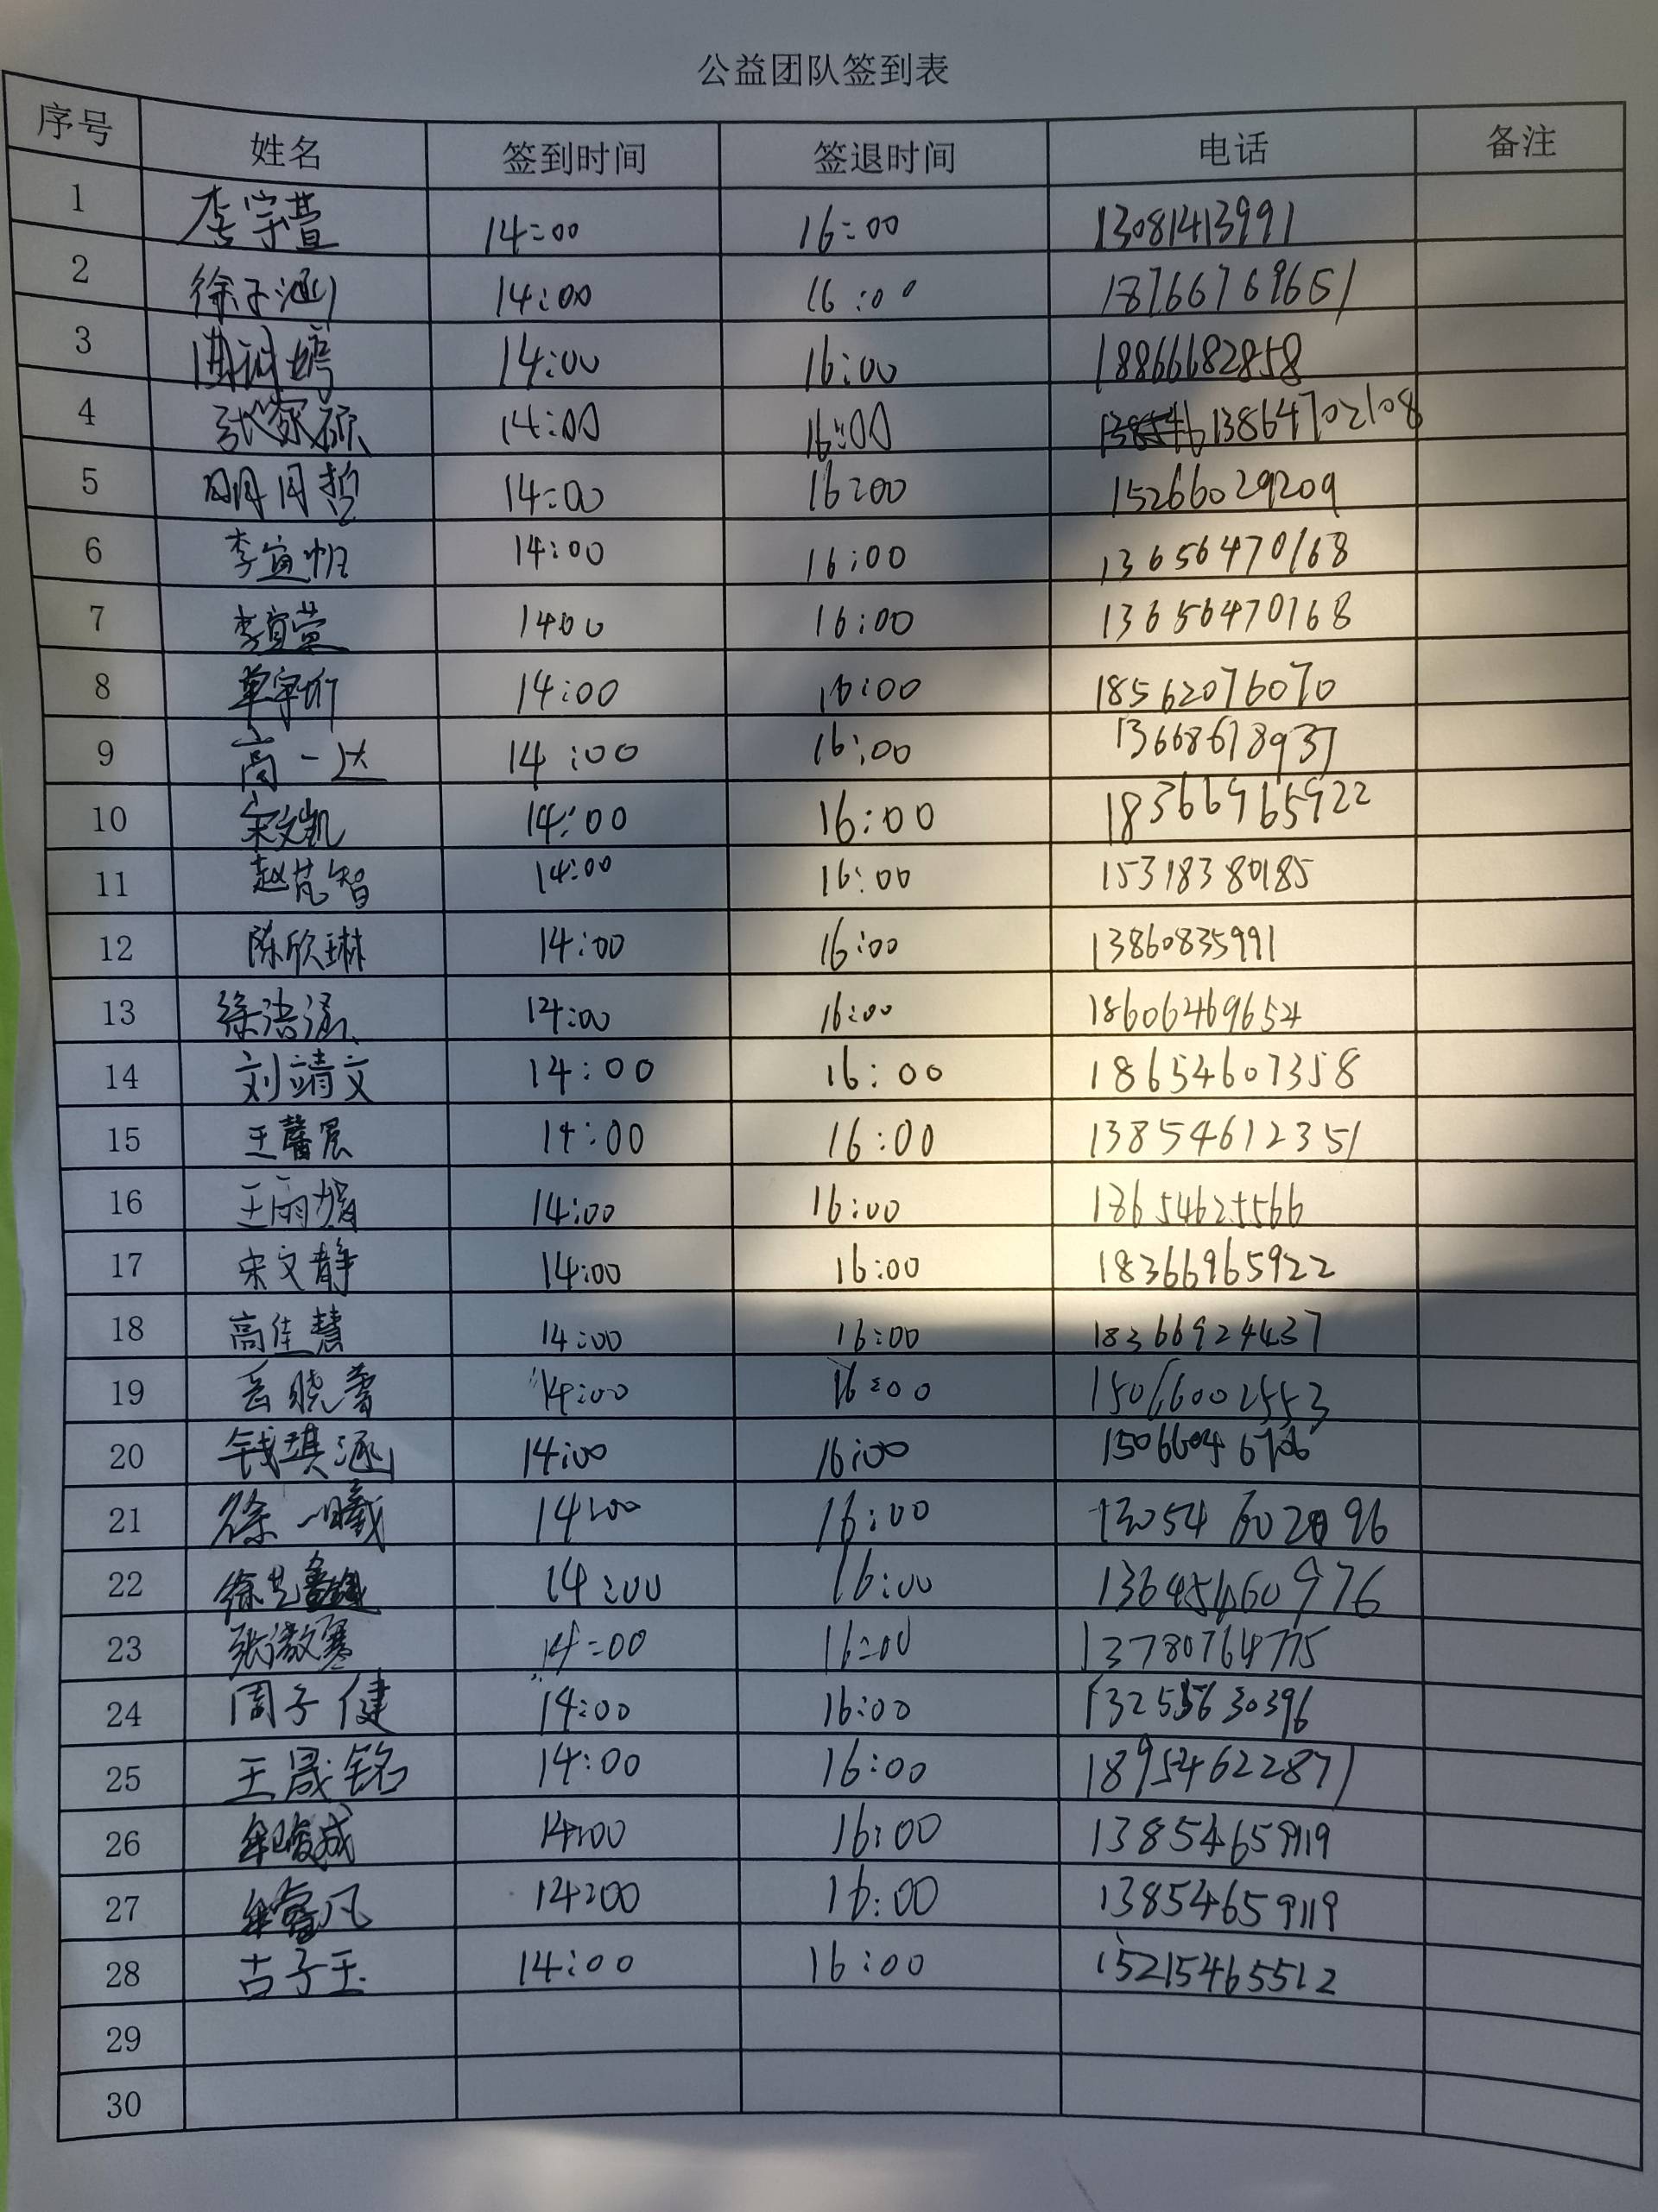 公益团队签到表
序号 姓名 签到时间 签退时间 电话 备注
1 李宗萱 14:00 16:00 13081413991
2 徐子涵 14:00 16:00 18766769651
3 14:00 16:00 18866682858
4 张家硕 14:00 16:00 13864702108
5 明月哲 14:00 16:00 15266029209
6 李宜帆 14:00 16:00 13656470168
7 李宜萱 1400 16:00 13656470168
8 单宇珩 14:00 16:00 18562076070
9 高一达 14:00 16:00 13668678937
10 宋文凯 14:00 16:00 18366965922
11 赵芃智 14:00 16:00 15318380185
12 陈欣琳 14:00 16:00 13860835991
13 徐浩涵 14:00 16:00 18606469654
14 刘靖文 14:00 16:00 18654607358
15 王馨晨 14:00 16:00 13854612351
16 14:00 16:00 18654625566
17 宋文静 14:00 16:00 18366965922
18 高佳慧 14:00 16:00 18366924437
19 岳晓蕾 14:00 16:00 15066002553
20 钱琪涵 14:00 16:00
21 徐一曦 14:00 16:00
22 14:00 16:00
23 14:00 16:00 13780764775
24 周子健 14:00 16:00
25 王晟铭 14:00 16:00 18954622871
26 牟晙成 14:00 16:00 13854659119
27 牟睿凡 14:00 16:00 13854659119
28 古子玉 14:00 16:00 15215465512
29
30